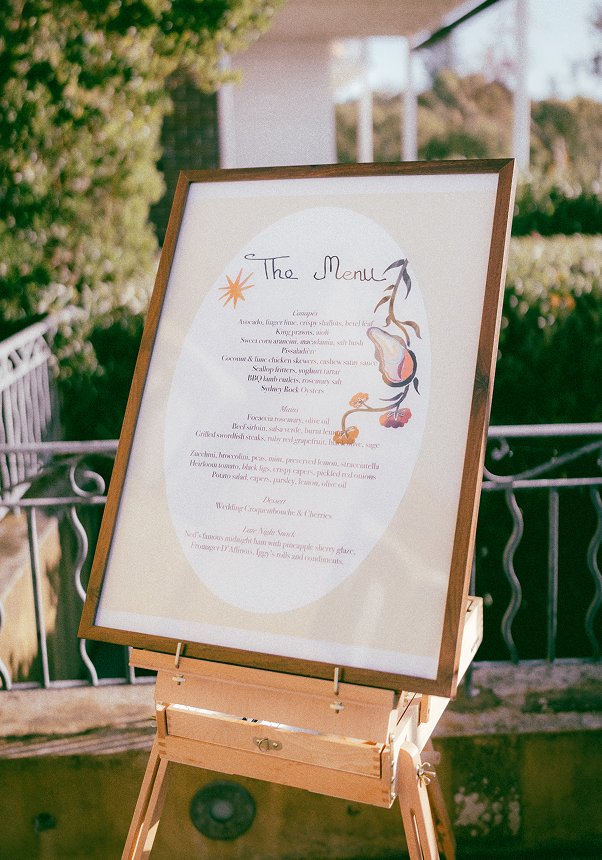 The Menu
Canapés
Avocado, finger lime, crispy shallots, betel leaf
King prawns, aioli
Sweet corn arancini, macadamia, salt bush
Pissaladière
Coconut & lime chicken skewers, cashew satay sauce
Scallop fritters, yoghurt tartar
BBQ lamb cutlets, rosemary salt
Sydney Rock Oysters
Mains
Focaccia rosemary, olive oil
Beef sirloin, salsa verde, burnt lemon
Grilled swordfish steaks, ruby red grapefruit, sage
Zucchini, broccolini, peas, mint, preserved lemon, stracciatella
Heirloom tomato, black figs, crispy capers, pickled red onions
Potato salad, capers, parsley, lemon, olive oil
Dessert
Wedding Croquembouche & Cherries
Late Night Snack
Ned's famous midnight ham with pineapple sherry glaze,
Fromager D'Affinois, Iggy's rolls and condiments.